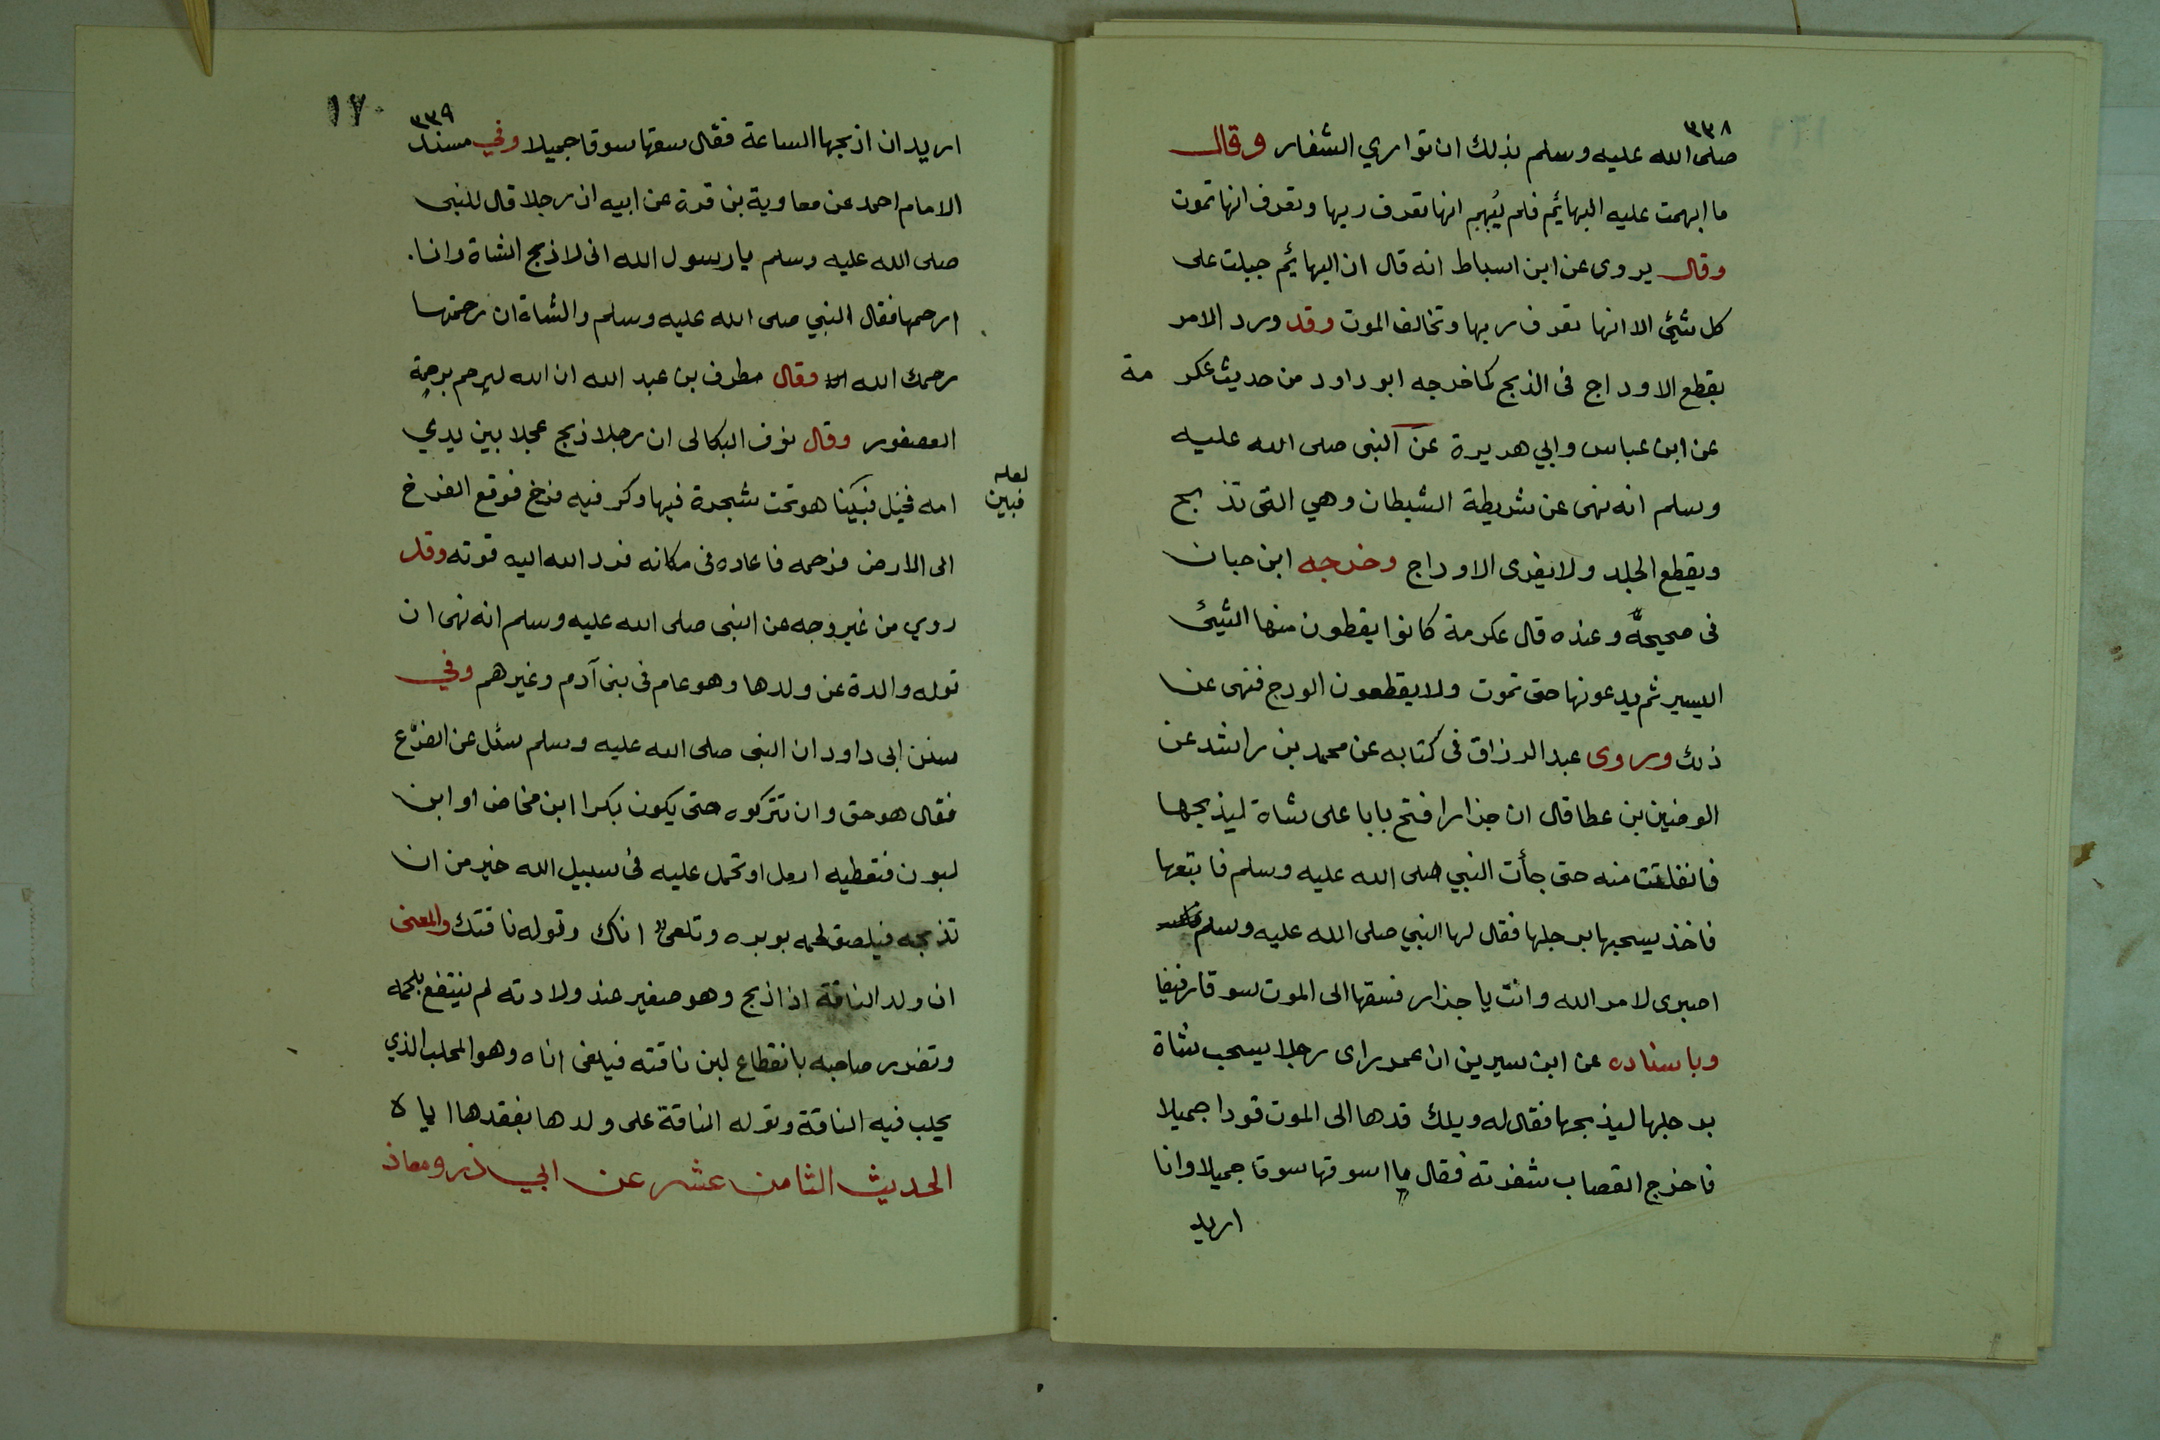 ٣٣٨
صلى الله عليه وسلم بذلك ان تواري الشفار وقال
ما ابهمت عليه البهائم فلم يُبهم انها تعرف ربها وتعرف انها تموت
وقال يروى عن ابن اسباط انه قال ان البهائم جبلت على
كل شئ الا انها تعرف ربها وتخالف الموت وقد ورد الامر
بقطع الاوداج فى الذبح كما خرجه ابو داود من حديث عكرمة
عن ابن عباس وابي هريرة عن النبى صلى الله عليه
وسلم انه نهى عن شريطة الشيطان وهي التى تذبح
ويقطع الجلد ولا يفرى الاوداج وخرجه ابن حبان
فى صحيحه وعنده قال عكرمة كانوا يقطعون منها الشئ
اليسير ثم يدعونها حتى تموت ولا يقطعون الودج فنهى عن
ذلك وروى عبد الرزاق فى كتابه عن محمد بن راشد عن
الوضين بن عطا قال ان جزارا فتح بابا على شاة ليذبحها
فانفلتت منه حتى جأت النبي صلى الله عليه وسلم فاتبعها
فاخذ يسحبها برجلها فقال لها النبي صلى الله عليه وسلم
اصبرى لامر الله وانت يا جزار فسقها الى الموت سوقا رفيقا
وباسناده عن ابن سيرين ان عمر راى رجلا يسحب شاة
برجلها ليذبحها فقال له ويلك قدها الى الموت قودا جميلا
فاخرج القصاب شفرته فقال ما اسوقها سوقا جميلا وانا
اريد
١٧٠
٣٣٩
اريد ان اذبحها الساعة فقال سقها سوقا جميلا وفي مسند
الامام احمد عن معاوية بن قرة عن ابيه ان رجلا قال للنبى
صلى الله عليه وسلم يا رسول الله انى لاذبح الشاة وانا
ارحمها فقال النبي صلى الله عليه وسلم والشاة ان رحمتها
رحمك الله وقال مطرف بن عبد الله ان الله ليرحم برحمة
العصفور وقال نوف البكالى ان رجلا ذبح عجلا بين يدي
امه فخيل فبينا هو تحت شجرة فيها وكر فيه فرخ فوقع الفرخ
لعله
فبين
الى الارض فرحمه فاعاده فى مكانه فرد الله اليه قوته وقد
روي من غير وجه عن النبى صلى الله عليه وسلم انه نهى ان
توله والدة عن ولدها وهو عام فى بنى آدم وغيرهم وفي
سنن ابى داود ان النبى صلى الله عليه وسلم سئل عن الفرع
فقال هو حق وان تتركوه حتى يكون بكرا ابن مخاض او ابن
لبون فتعطيه ارمل او تحمل عليه فى سبيل الله خير من ان
تذبحه فيلصق لحمه بوبره وتلعى اناك وتوله ناقتك والمعنى
ان ولد الناقة اذا ذبح وهو صغير عند ولادته لم ينتفع بلحمه
وتضرر صاحبه بانقطاع لبن ناقته فيلغى اناه وهو المحلب الذي
يحلب فيه الناقة وتوله الناقة على ولدها بفقدها اياه
الحديث الثامن عشر عن ابي ذر ومعاذ